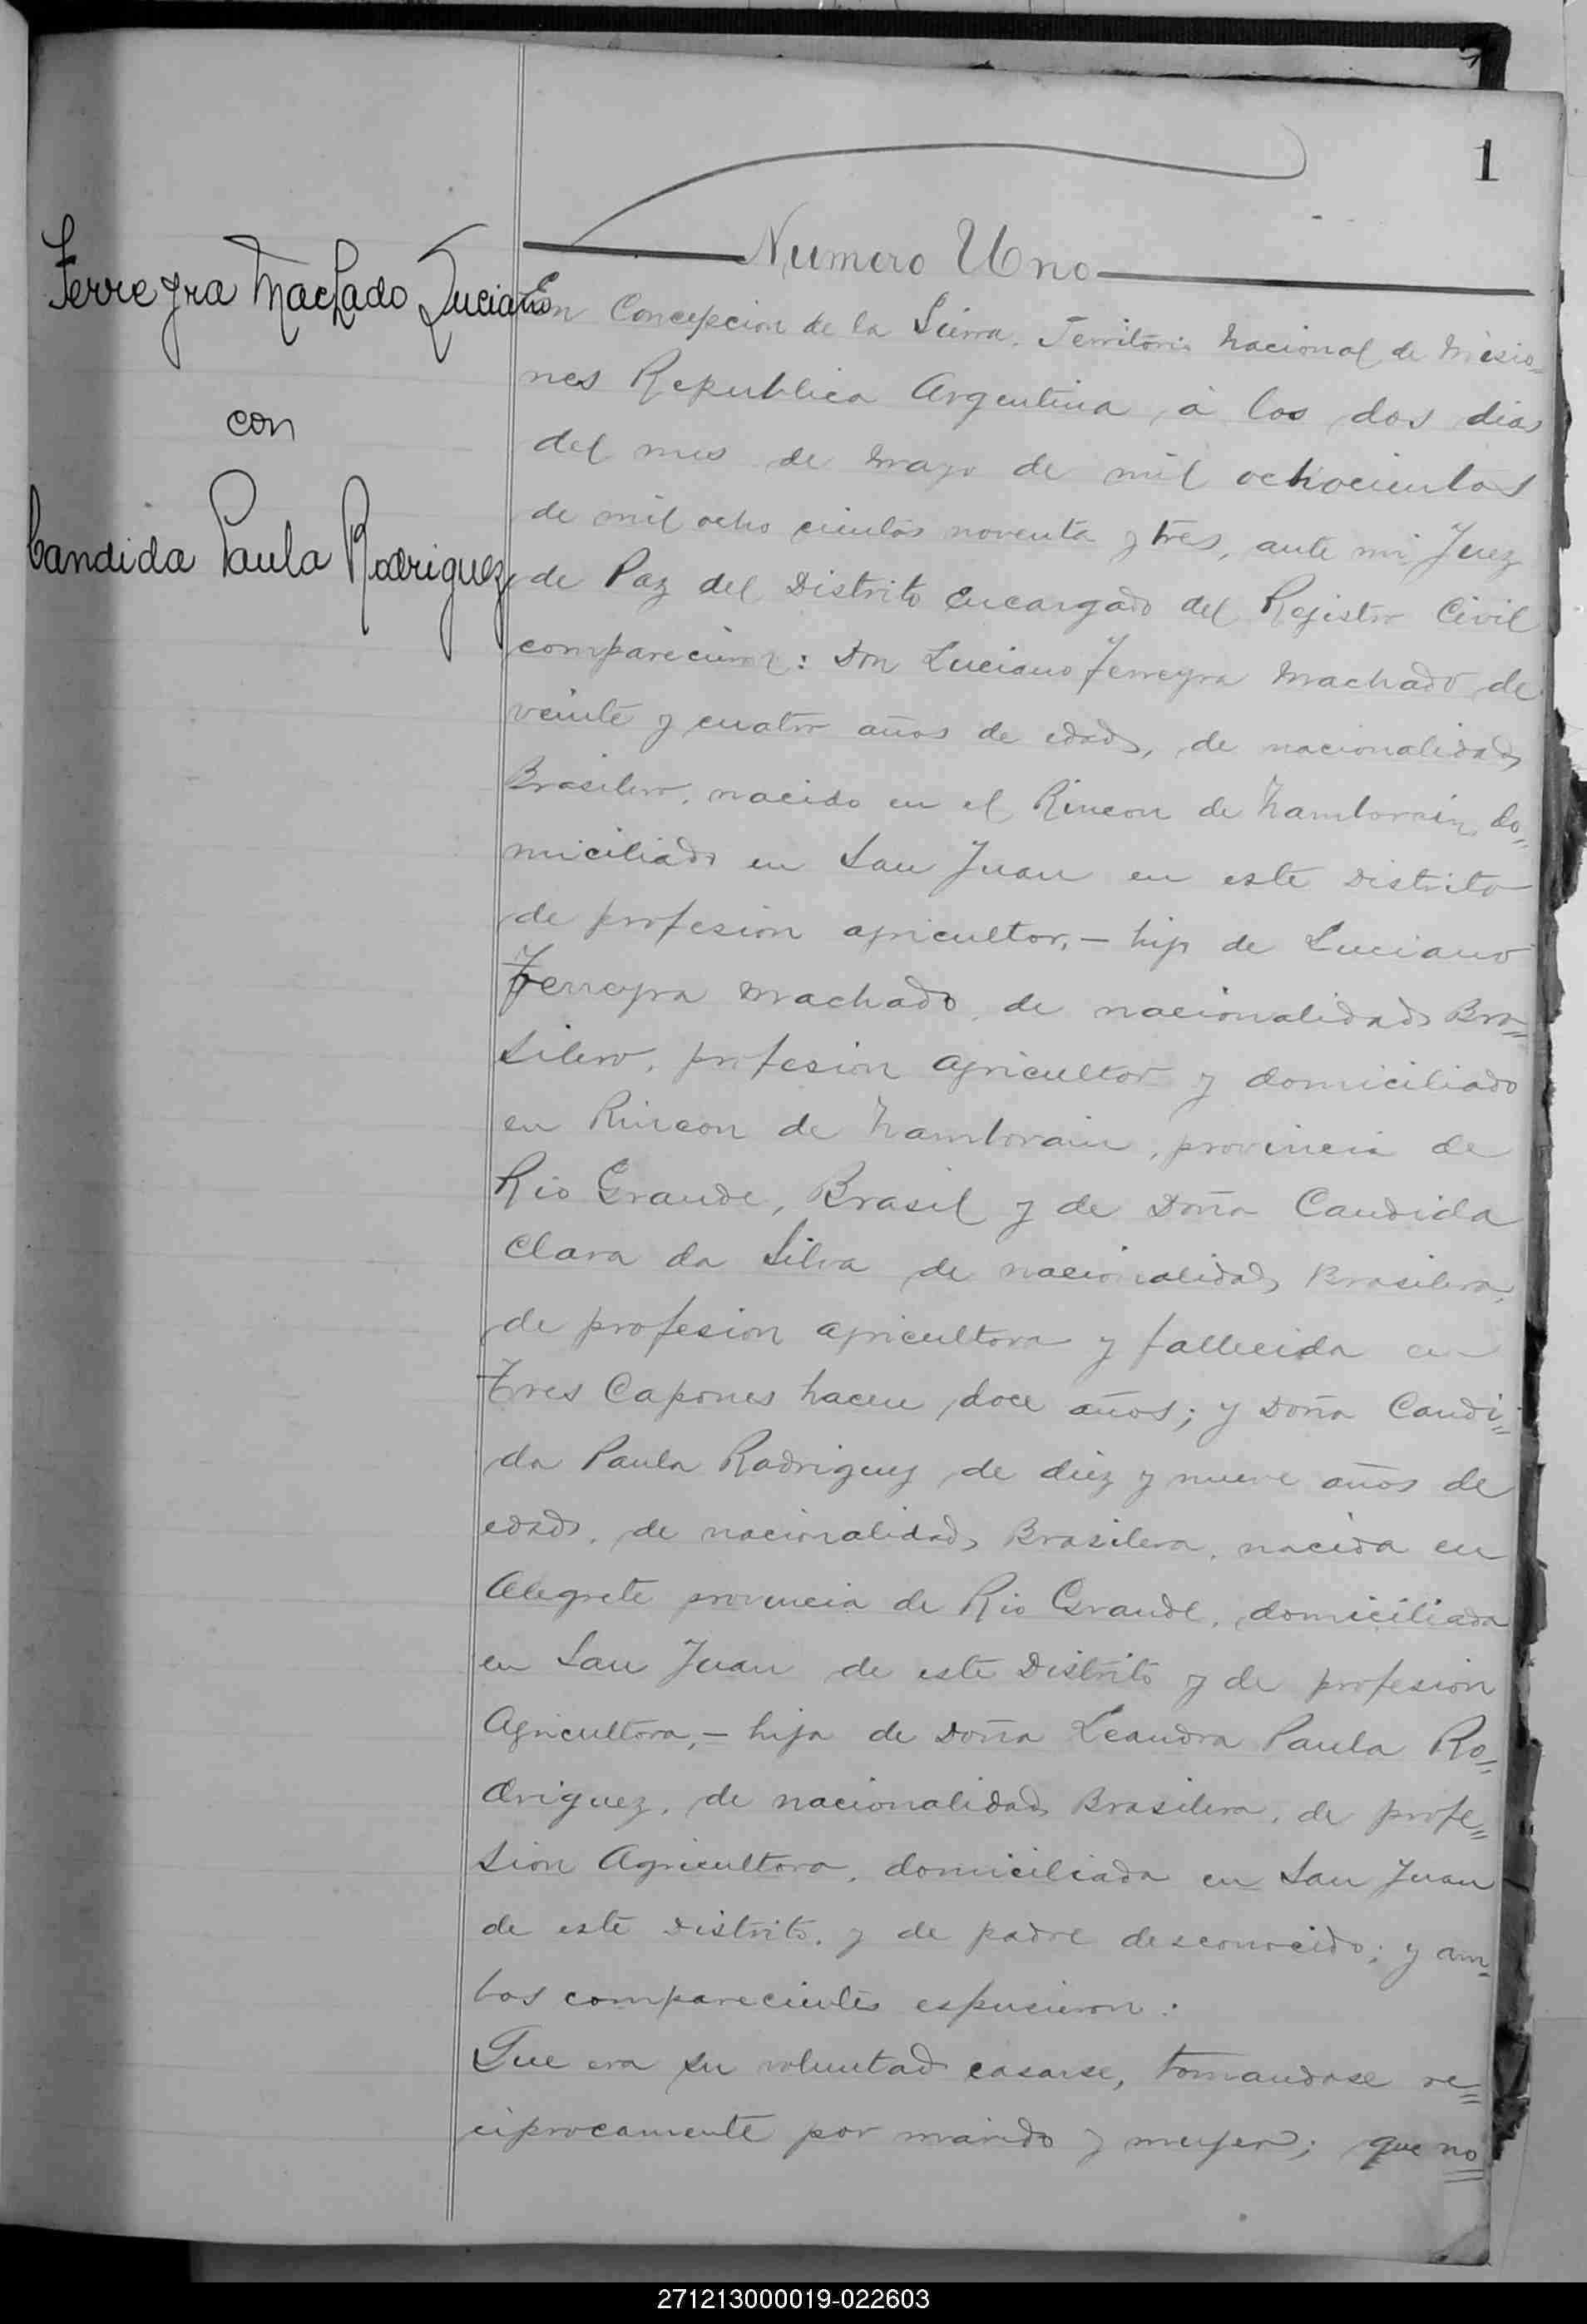 1
Numero Uno
Ferreyra Machado Luciano
con
Candida Paula Rodriguez
En Concepcion de la Sierra, Territorio Nacional de Misio=
nes Republica Argentina, á los dos dias
del mes de Mayo de mil ochocientos
de mil ocho cientos noventa y tres, ante mi Juez
de Paz del Distrito Encargado del Rejistro Civil
comparecieron: Don Luciano Ferreyra Machado de
veinte y cuatro años de edad, de nacionalidad
Brasilero, nacido en el Rincon de, do=
miciliado en San Juan en este Distrito
de profesion agricultor,- hijo de Luciano
Ferreyra Machado, de nacionalidad Bra=
silero, profesion agricultor y domiciliado
en Rincon de, provincia de
Rio Grande, Brasil y de Doña Candida
Clara da Silva de nacionalidad Brasilera,
de profesion agricultora y fallecida en
Tres Capones hacen doce años; y Doña Candi=
da Paula Rodriguez de diez y nueve años de
edad, de nacionalidad Brasilera, nacida en
Alegrete provincia de Rio Grande, domiciliada
en San Juan de este Distrito y de profesion
Agricultora,- hija de Doña Leandra Paula Ro=
driguez, de nacionalidad Brasilera, de profe=
sion Agricultora, domiciliada en San Juan
de este Distrito, y de padre desconocido; y am=
bos comparecientes espusieron:
Que era su voluntad casarse, tomandose re=
ciprocamente por marido y mujer; que no
271213000019-022603